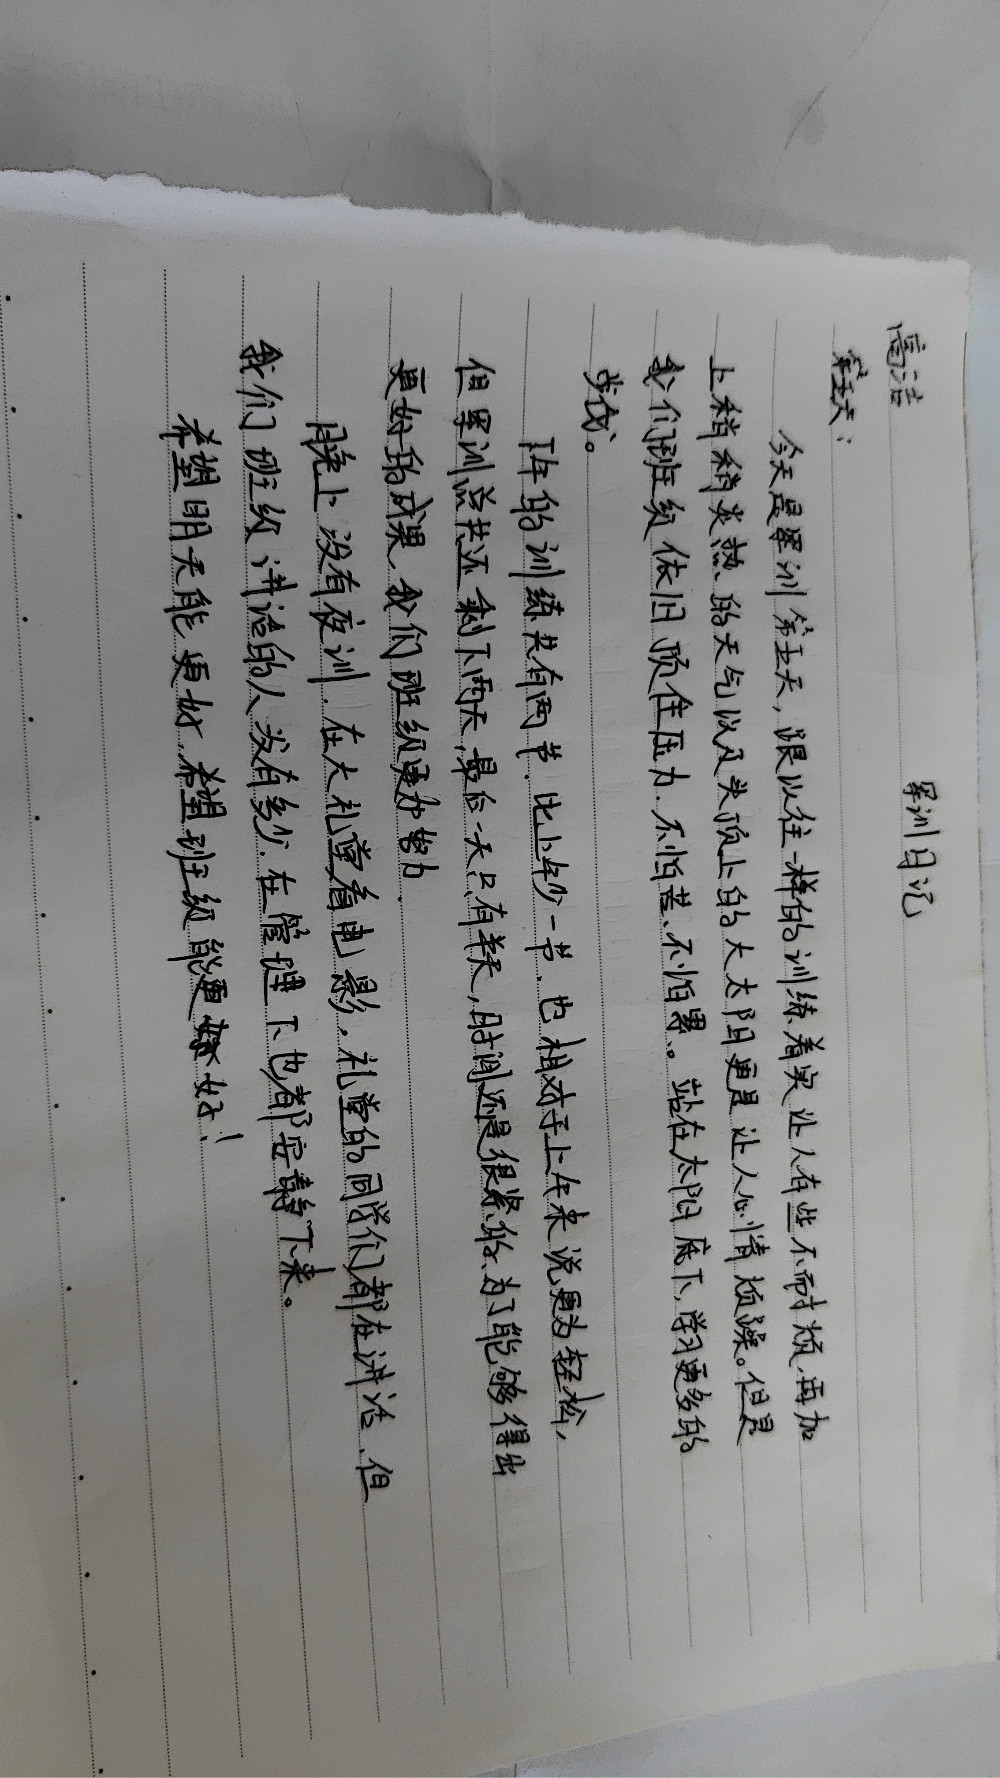 军训日记
高洁
第五天：
今天是军训第五天，跟以往一样的训练着实让人有些不耐烦，再加
上稍稍炎热的天气以及头顶上的大太阳更是让人心情烦躁。但是
我们班级依旧顶住压力、不怕苦、不怕累。站在太阳底下，学习更多的
步伐。
下午的训练共有两节，比上午少一节，也相对于上午来说更为轻松，
但军训总共还剩下两天，最后一天只有半天，时间还是很紧的，为了能够得出
更好的成果，我们班级更加努力.
晚上没有夜训，在大礼堂看电影，礼堂的同学们都在讲话，但
我们班级讲话的人没有多少，在管理下也都安静下来。
希望明天能更好，希望班级能更好！